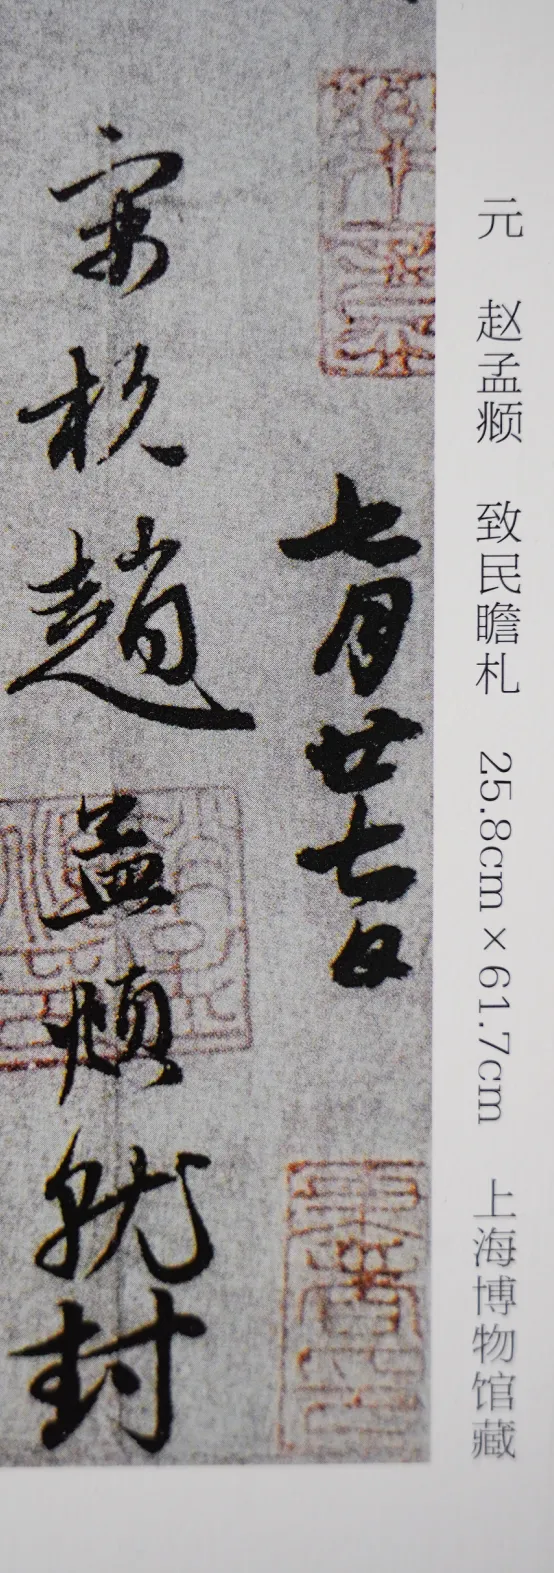 元 赵孟𫖯 致民瞻札 25.8cm×61.7cm 上海博物馆藏
七月廿七日
寓杭趙孟頫就封